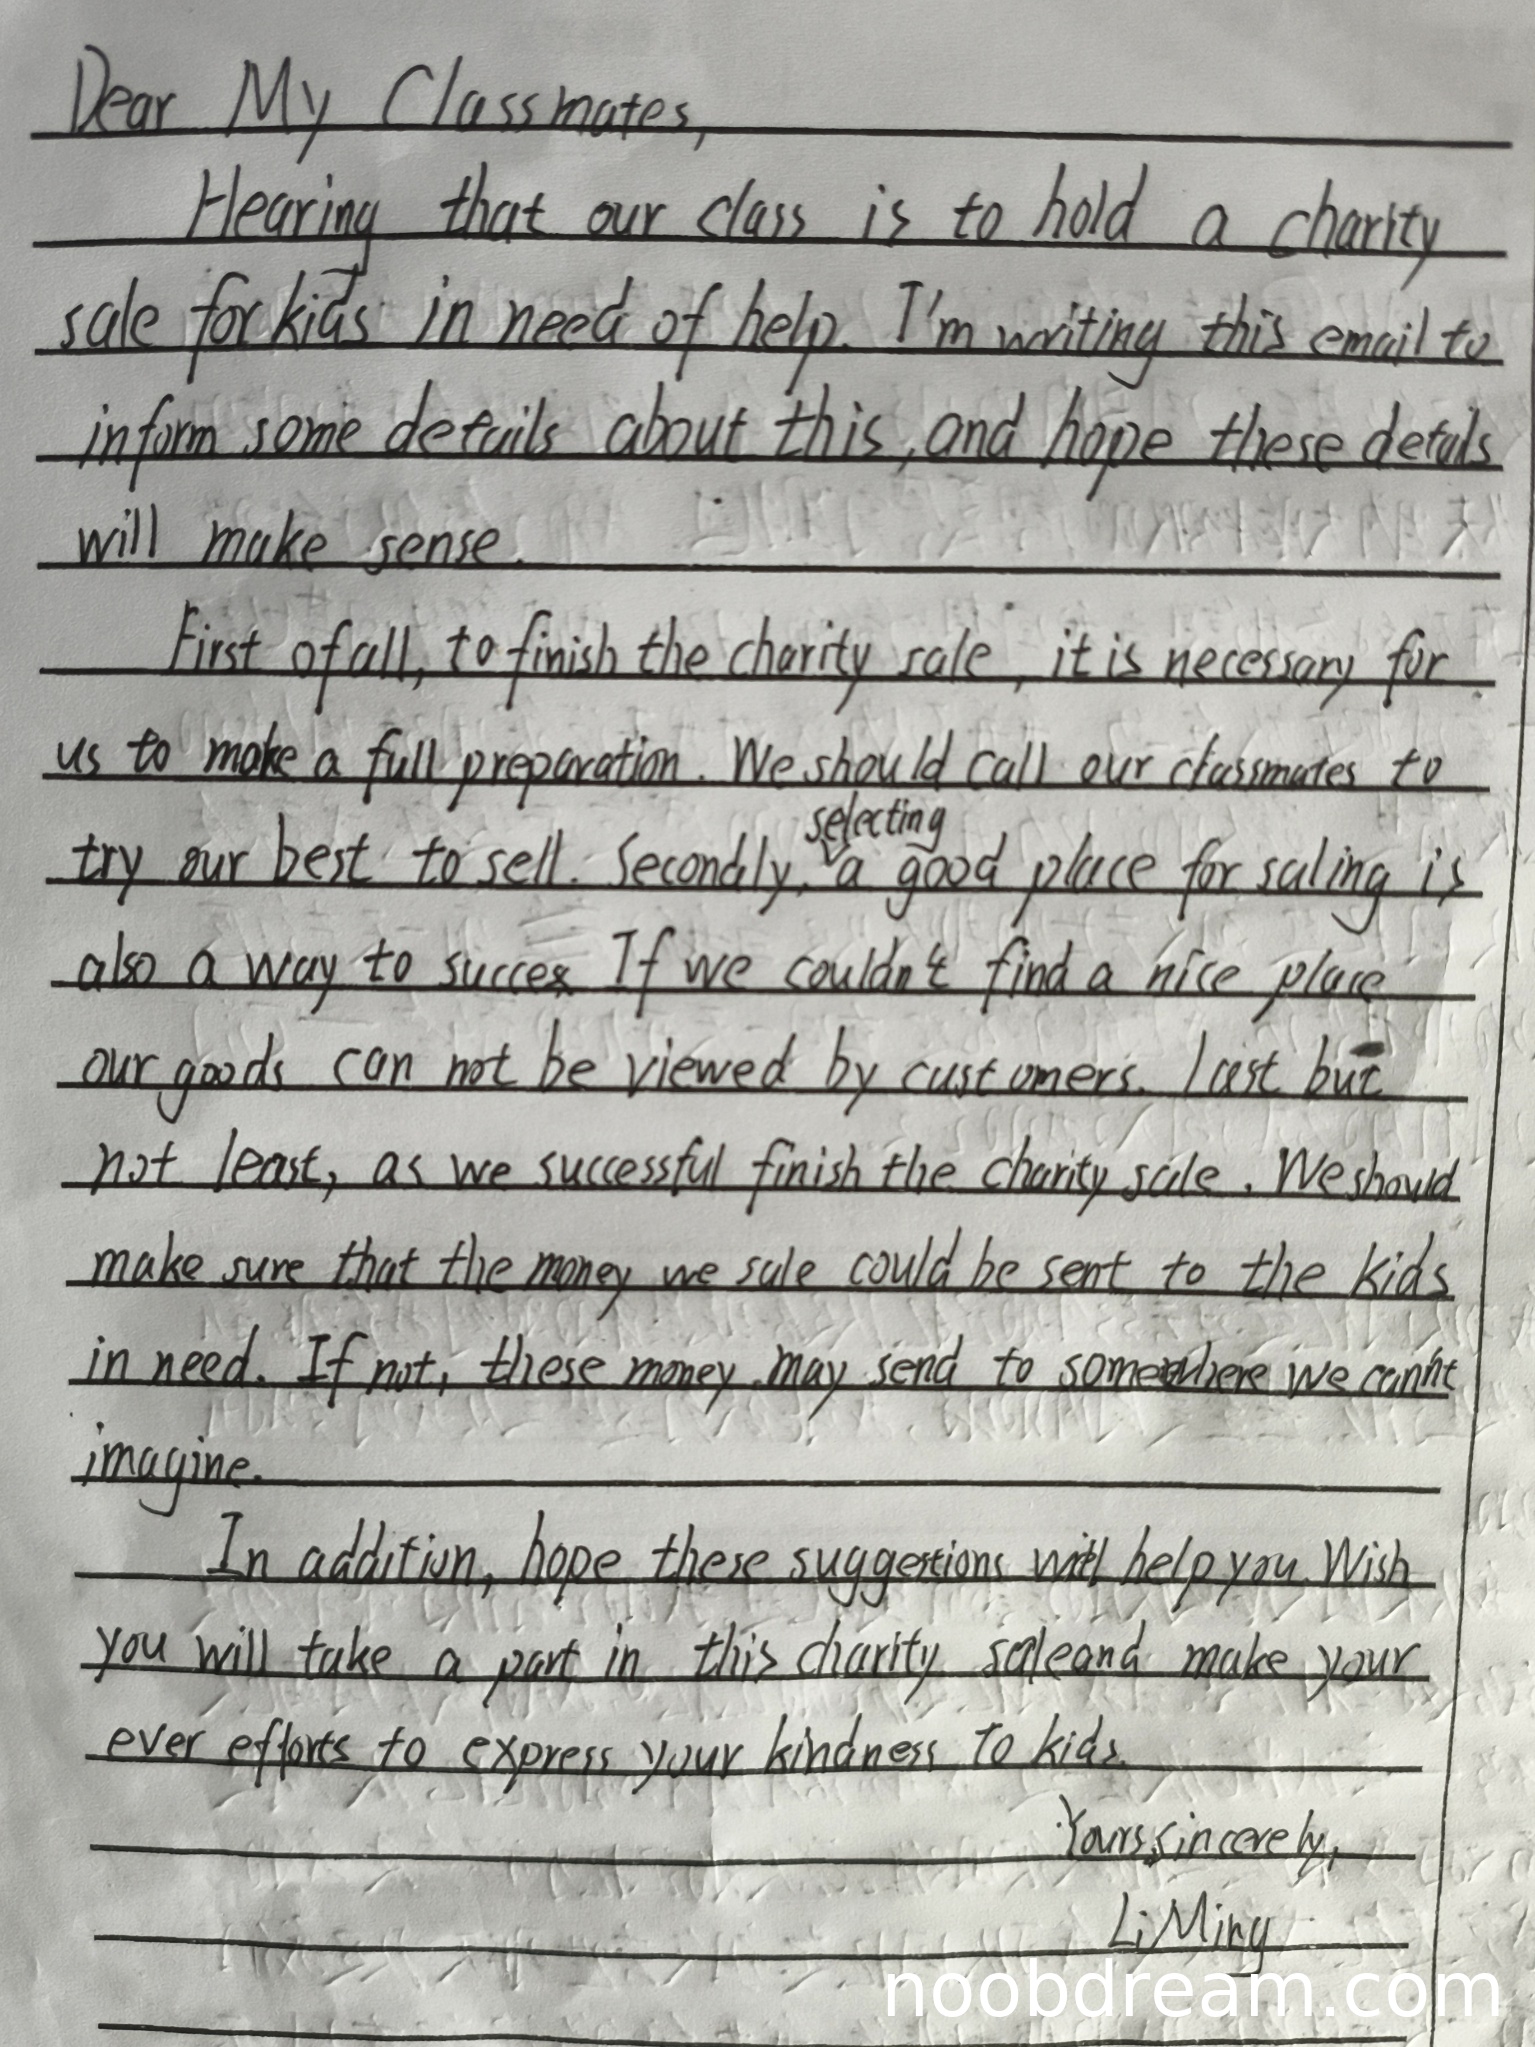 Dear My Classmates,
Hearing that our class is to hold a charity
sale for kids in need of help. I'm writing this email to
inform some details about this, and hope these details
will make sense.
First of all, to finish the charity sale, it is necessary for
us to make a full preparation. We should call our classmates to
selecting
try our best to sell. Secondly, a good place for saling is
also a way to succes. If we couldn't find a nice place
our goods can not be viewed by customers. Last but
not least, as we successful finish the charity sale. We should
make sure that the money we sale could be sent to the kids
in need. If not, these money may send to somewhere we cann't
imagine.
In addition, hope these suggestions will help you. Wish
you will take a part in this charity sale and make your
ever efforts to express your kindness to kids.
Yours sincerely,
Li Ming
noobdream.com